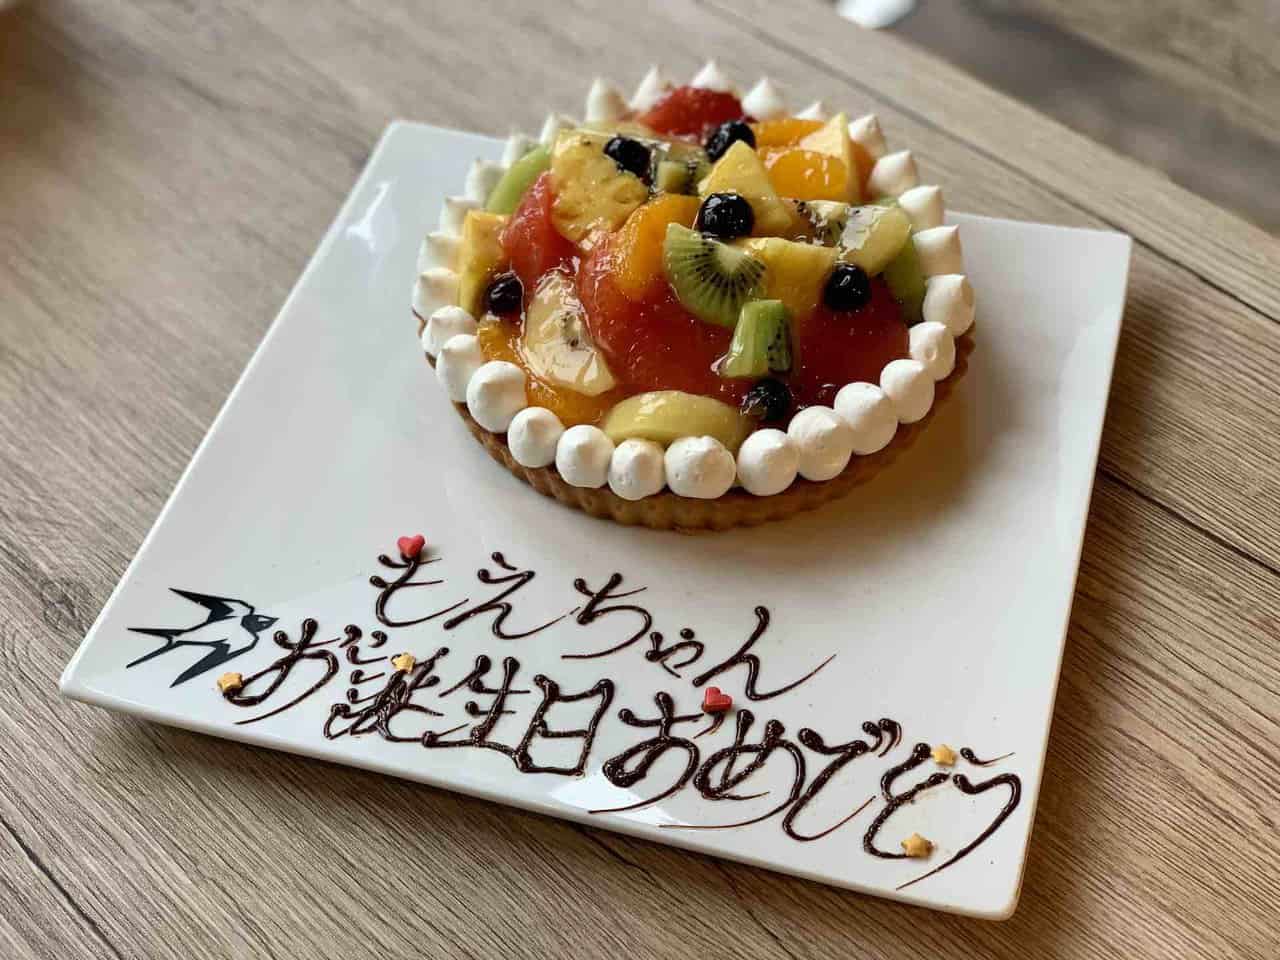 もえちゃん
お誕生日おめでとう